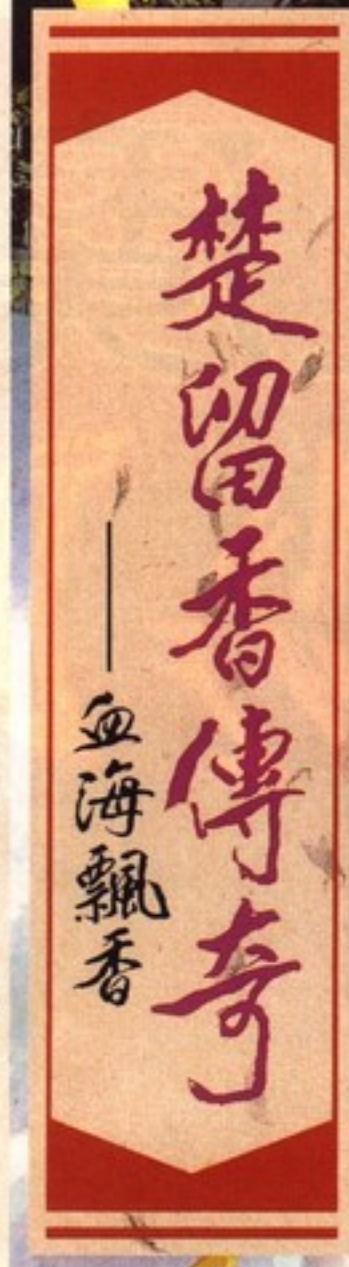 楚留香傳奇
——血海飄香